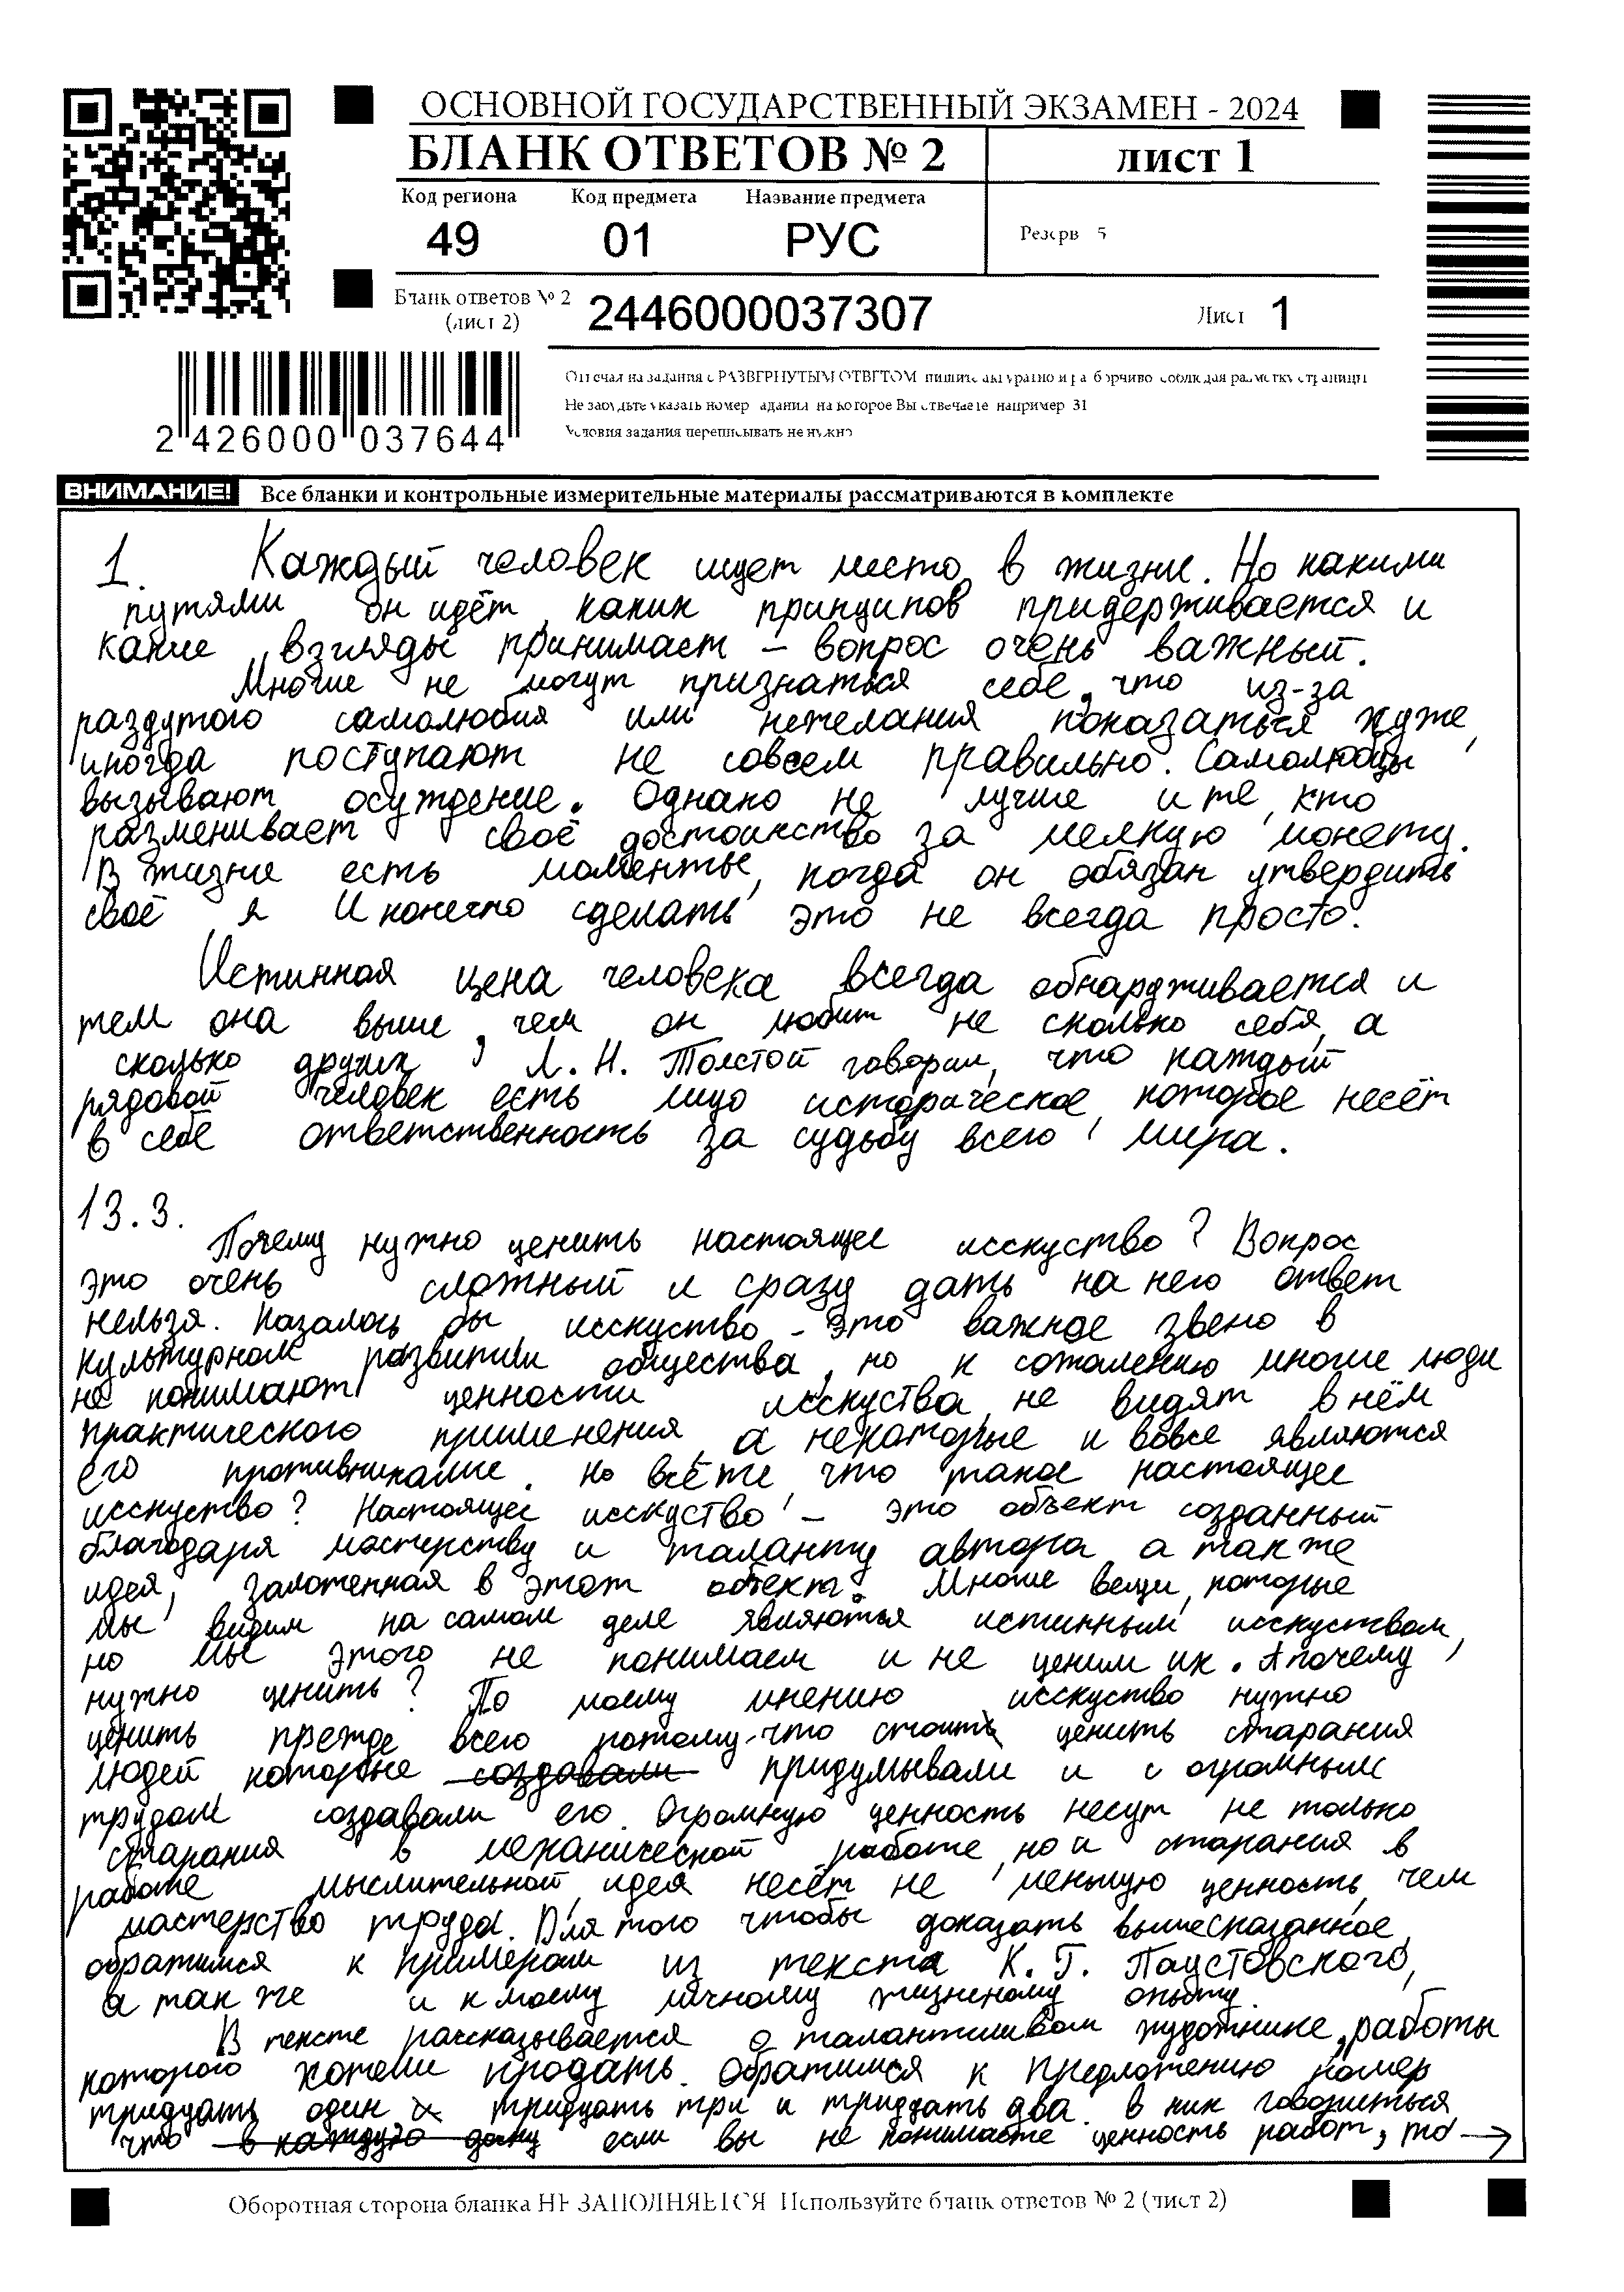 ОСНОВНОЙ ГОСУДАРСТВЕННЫЙ ЭКЗАМЕН - 2024
БЛАНК ОТВЕТОВ № 2
лист 1
Код региона Код предмета Название предмета
49 01 РУС
Резерв 5
Бланк ответов № 2
(лист 2)
2446000037307
Лист 1
Отвечая на задания с РАЗВЕРНУТЫМ ОТВЕТОМ пишите аккуратно и разборчиво соблюдая разметку страницы
Не забудьте указать номер задания на которое Вы отвечаете например 31
Условия задания переписывать не нужно
2 426000 037644
ВНИМАНИЕ! Все бланки и контрольные измерительные материалы рассматриваются в комплекте
1. Каждый человек ищет место в жизни. Но какими
путями он идёт, каких принципов придерживается и
какие взгляды принимает – вопрос очень важный.
Многие не могут признаться себе, что из-за
раздутого самолюбия или нежелания показаться хуже,
иногда поступают не совсем правильно. Самолюбцы
вызывают осуждение. Однако не лучше и те, кто
разменивает своё достоинство за мелкую монету.
В жизни есть моменты, когда он обязан утвердить
своё я И конечно сделать это не всегда просто.
Истинная цена человека всегда обнардживается и
тем она выше, чем он любит не сколько себя, а
сколько других, Л. Н. Толстой говорил, что каждый
рядовой человек есть лицо историческое, которое несёт
в себе ответственность за судьбу всего мира.
13.3.
Почему нужно ценить настоящее исскуство? Вопрос
это очень сложный и сразу дать на него ответ
нельзя. Казалось бы, исскуство – это важное звено в
культурном развитии общества, но к сожалению многие люди
не понимают ценности исскуства, не видят в нём
практического применения, а некоторые и вовсе являются
его противниками. Но всё же, что такое настоящее
исскуство? Настоящее исскуство – это объект созданный
благодаря мастерству и таланту автора а так же
идея, заложенная в этот объект. Многие вещи, которые
мы видим на самом деле являются истинным исскуством,
но мы этого не понимаем и не ценим их. А почему
нужно ценить? По моему мнению исскуство нужно
ценить прежде всего потому-что стоить ценить старания
людей которые создавали придумывали и с огромным
трудом создавали его. Огромную ценность несут не только
старания в механической работе, но и старания в
работе мыслительной, идея несёт не меньшую ценность, чем
мастерство труда. Для того чтобы доказать вышесказанное,
обратимся к примерам из текста К. Г. Паустовского,
а так же и к моему личному жизненому опыту.
В тексте рассказывается о талантливом художнике, работы
которого хотели продать. Обратимся к предложению номер
тридцать один и тридцать три и тридцать два. В них говориться
что в каждую дачу если вы не понимаете ценность работ, то →
Оборотная сторона бланка НЕ ЗАПОЛНЯЕТСЯ Используйте бланк ответов № 2 (лист 2)